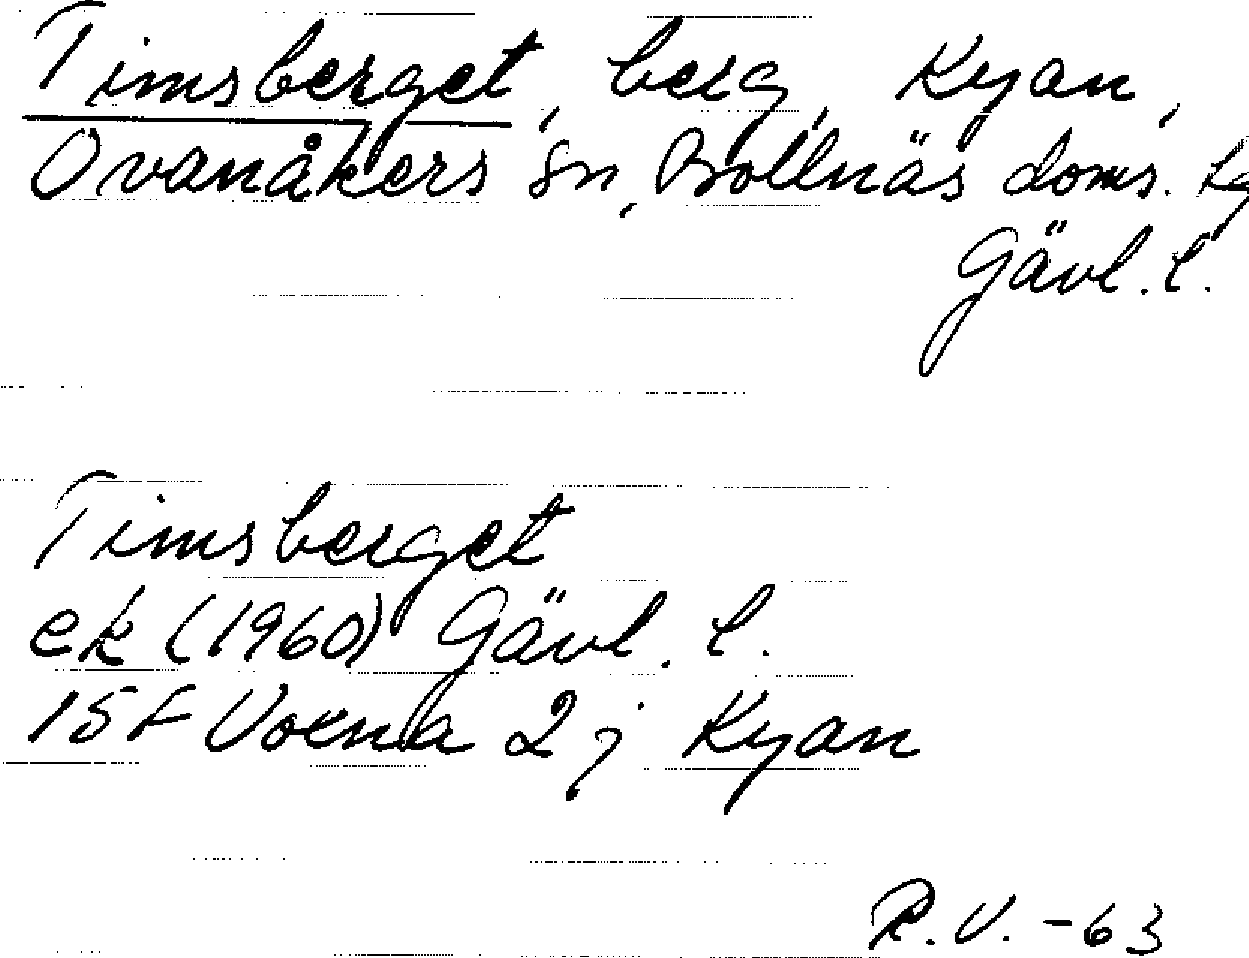 Timsberget, berg, Kyan,
Ovanåkers sn, Bollnäs doms. lg
Gävl. l.
Timsberget
ek (1960) Gävl. l.
15 F Voxna 2 j Kyan
R.V. -63